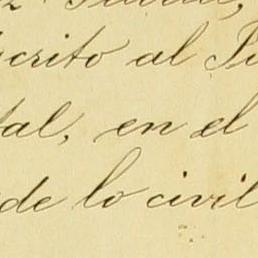 scrito al
tal, en el
de lo civil